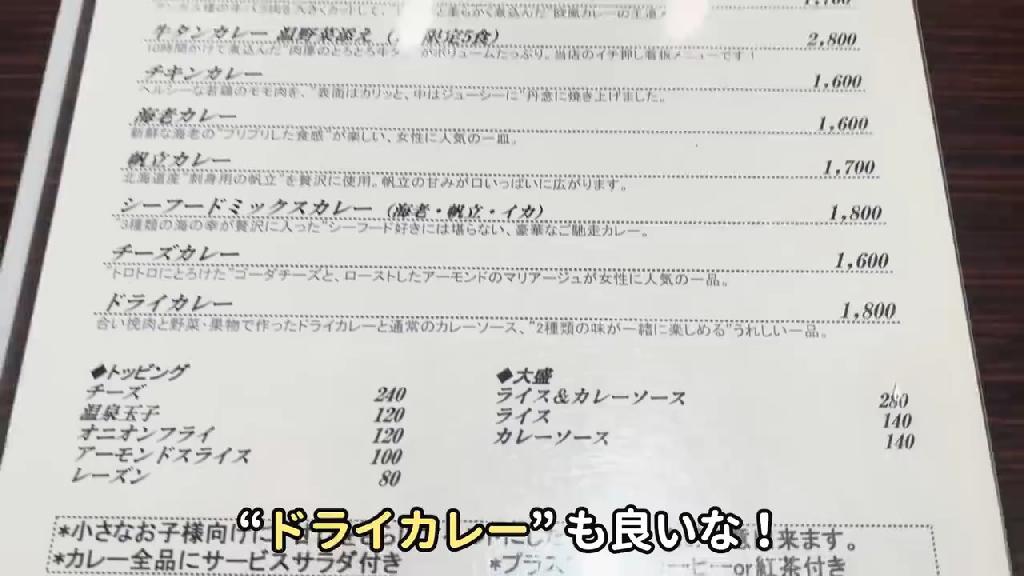 牛タンカレー 温野菜添え 限定5食） 2,800
10時間かけて煮込んだ がボリュームたっぷり。当店のイチ押し看板メニューです！
チキンカレー 1,600
ヘルシーな若鶏のモモ肉を、"表面はカリッと、中はジューシーに"丹念に焼き上げました。
海老カレー 1,600
新鮮な海老の"プリプリした食感"が楽しい、女性に人気の一皿。
帆立カレー 1,700
北海道産"刺身用の帆立"を贅沢に使用。帆立の甘みが口いっぱいに広がります。
シーフードミックスカレー （海老・帆立・イカ） 1,800
3種類の海の幸が贅沢に入った"シーフード好きには堪らない、豪華なご馳走カレー。
チーズカレー 1,600
"トロトロにとろけた"ゴーダチーズと、ローストしたアーモンドのマリアージュが女性に人気の一品。
ドライカレー 1,800
合い挽肉と野菜・果物で作ったドライカレーと通常のカレーソース、"2種類の味が一緒に楽しめる"うれしい一品。
◆トッピング
チーズ 240
温泉玉子 120
オニオンフライ 120
アーモンドスライス 100
レーズン 80
◆大盛
ライス&カレーソース 280
ライス 140
カレーソース 140
*小さなお子様向けに 来ます。
*カレー全品にサービスサラダ付き
*プラス or紅茶付き
"ドライカレー"も良いな！